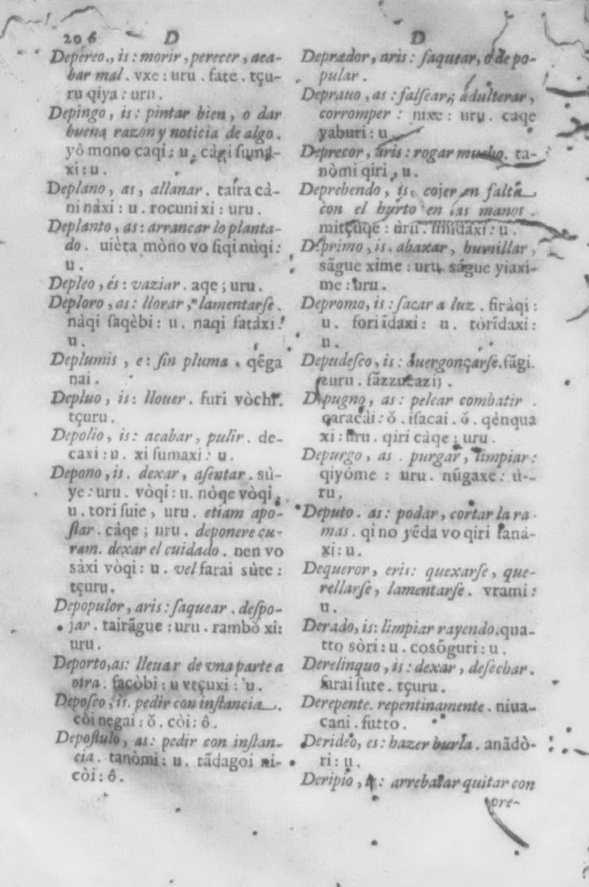 206 D
Depereo, is: morir, perecer, aca-
bar mal. vxe: uru. fate. tçu-
ru qiya: uru.
Depingo, is: pintar bien, o dar
buena razon y noticia de algo.
yô mono caqi: u. càgi ſuma-
xi: u.
Deplano, as, allanar. taira cà-
ni nàxi: u. rocuni xi: uru.
Deplanto, as: arrancar lo planta-
do. uièta mòno vo fiqi nùqi:
u.
Depleo, és: vaziar. aqe; uru.
Deploro, as: llorar, lamentarſe.
nàqi ſaqèbi: u. naqi fatáxi:
u.
Deplumis, e: ſin pluma. qẽga
nai.
Depluo, is: llouer. furi vòchi.
tçuru.
Depolio, is: acabar, pulir. de-
caxi: u. xi ſumaxi: u.
Depono, is. dexar, aſentar. sù-
ye: uru. vòqi: u. nòqe vòqi,
u. tori ſuie, uru. etiam apo-
ſtar. càqe; uru. deponere cu-
ram. dexar el cuidado. nen vo
sàxi vòqi: u. vel farai sùte:
tçuru.
Depopulor, aris: ſaquear. deſpo-
jar. tairãgue: uru. rambò xi:
uru.
Deporto, as: lleuar de vna parte a
otra. facòbi: u veçuxi: u.
Depoſco, is. pedir con inſtancia.
còi negai: ô. còi: ô.
Depoſtulo, as: pedir con inſtan-
cia. tanòmi: u. tãdagoi ni-
còi: ô.
D
Deprædor, aris: ſaquear, o de po-
pular.
Deprauo, as: falſear, adulterar,
corromper: nixe: uru. caqe
yaburi: u.
Deprecor, aris: rogar mucho. ta-
nòmi qiri, u.
Deprehendo, is: cojer en falta
con el hurto en las manos.
mitçuqe: uru. midaxi: u.
Deprimo, is. abaxar, humillar,
sãgue xime: uru. sãgue yiaxi-
me: uru.
Depromo, is: ſacar a luz. firàqi:
u. fori idaxi: u. toridaxi:
u.
Depudeſco, is: auergonçarſe. fãgi.
zuru. fãzzucazij.
Depugno, as: pelear combatir.
caracài: ô. iſacai. ô. qénqua
xi: uru. qiri càqe; uru.
Depurgo, as. purgar, limpiar:
qiyóme: uru. nũgaxe: u-
ru.
Deputo. as: podar, cortar la ra-
mas. qi no yẽda vo qiri fanà-
xi: u.
Dequeror, eris: quexarſe, que-
rellarſe, lamentarſe. vrami:
u.
Derado, is: limpiar rayendo. qua-
tto sòri: u. coſõguri: u.
Derelinquo, is: dexar, deſechar.
farai ſute. tçuru.
Derepente. repentinamente. niua-
cani. futto.
Derideo, es: hazer burla. anãdò-
ri: u.
Deripio, is: arrebatar quitar con
pre-